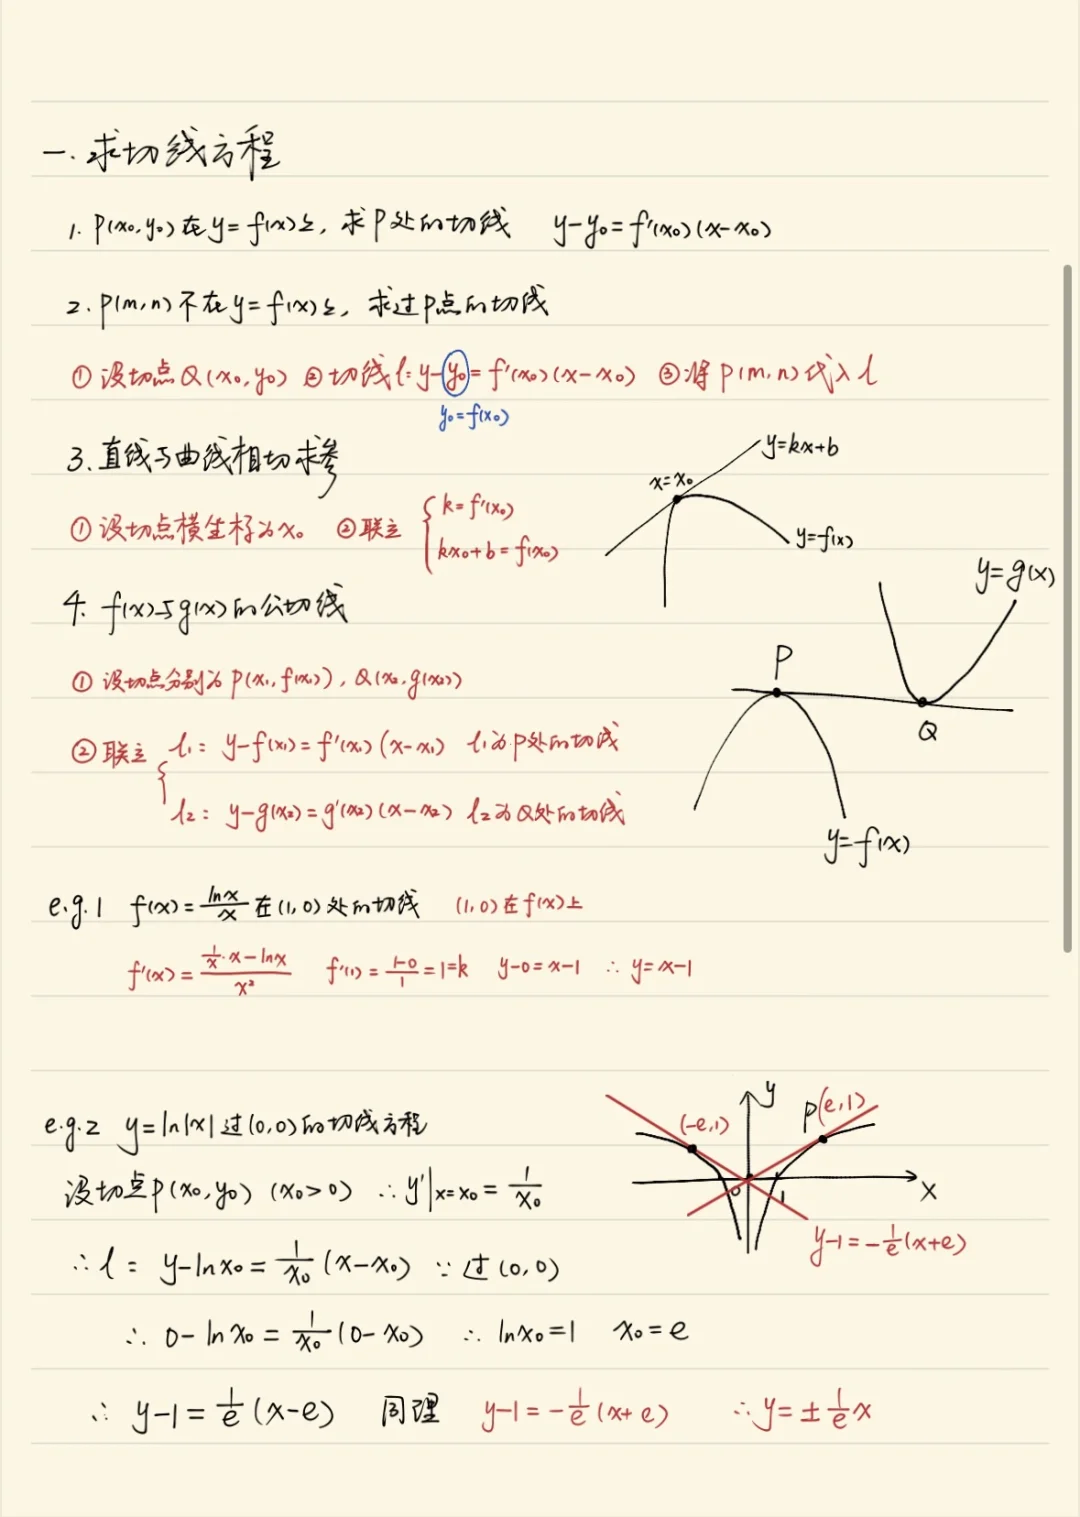 一. 求切线方程
1. P(x₀,y₀)在y=f(x)上, 求P处的切线 y-y₀=f'(x₀)(x-x₀)
2. P(m,n)不在y=f(x)上, 求过P点的切线
① 设切点Q(x₀,y₀) ②切线l: y-y₀=f'(x₀)(x-x₀) ③将P(m,n)代入l
y₀=f(x₀)
3. 直线与曲线相切求参
y=kx+b
x=x₀
① 设切点横坐标为x₀ ②联立 { k=f'(x₀)
kx₀+b=f(x₀)
y=f(x)
4. f(x)与g(x)的公切线
y=g(x)
① 设切点分别为P(x₁,f(x₁)), Q(x₂,g(x₂))
P
Q
② 联立 { l₁: y-f(x₁)=f'(x₁)(x-x₁) l₁为P处的切线
l₂: y-g(x₂)=g'(x₂)(x-x₂) l₂为Q处的切线
y=f(x)
e.g.1 f(x)=lnx/x 在(1,0)处的切线 (1,0)在f(x)上
f'(x)=(1/x·x-lnx)/x² f'(1)=(1-0)/1=1=k y-0=x-1 ∴ y=x-1
e.g.2 y=ln|x|过(0,0)的切线方程
y
(-e,1) P(e,1)
o 1 x
y-1=-1/e(x+e)
设切点P(x₀,y₀) (x₀>0) ∴y'|x=x₀=1/x₀
∴l: y-lnx₀=1/x₀(x-x₀) ∵过(0,0)
∴ 0-lnx₀=1/x₀(0-x₀) ∴ lnx₀=1 x₀=e
∴ y-1=1/e(x-e) 同理 y-1=-1/e(x+e) ∴y=±1/e x